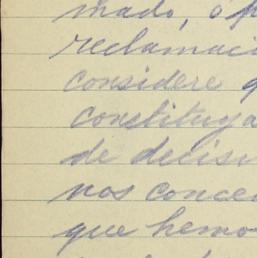 mado, o p
reclamaci
considere q
constituya
de decisi
nos conce
que hemo